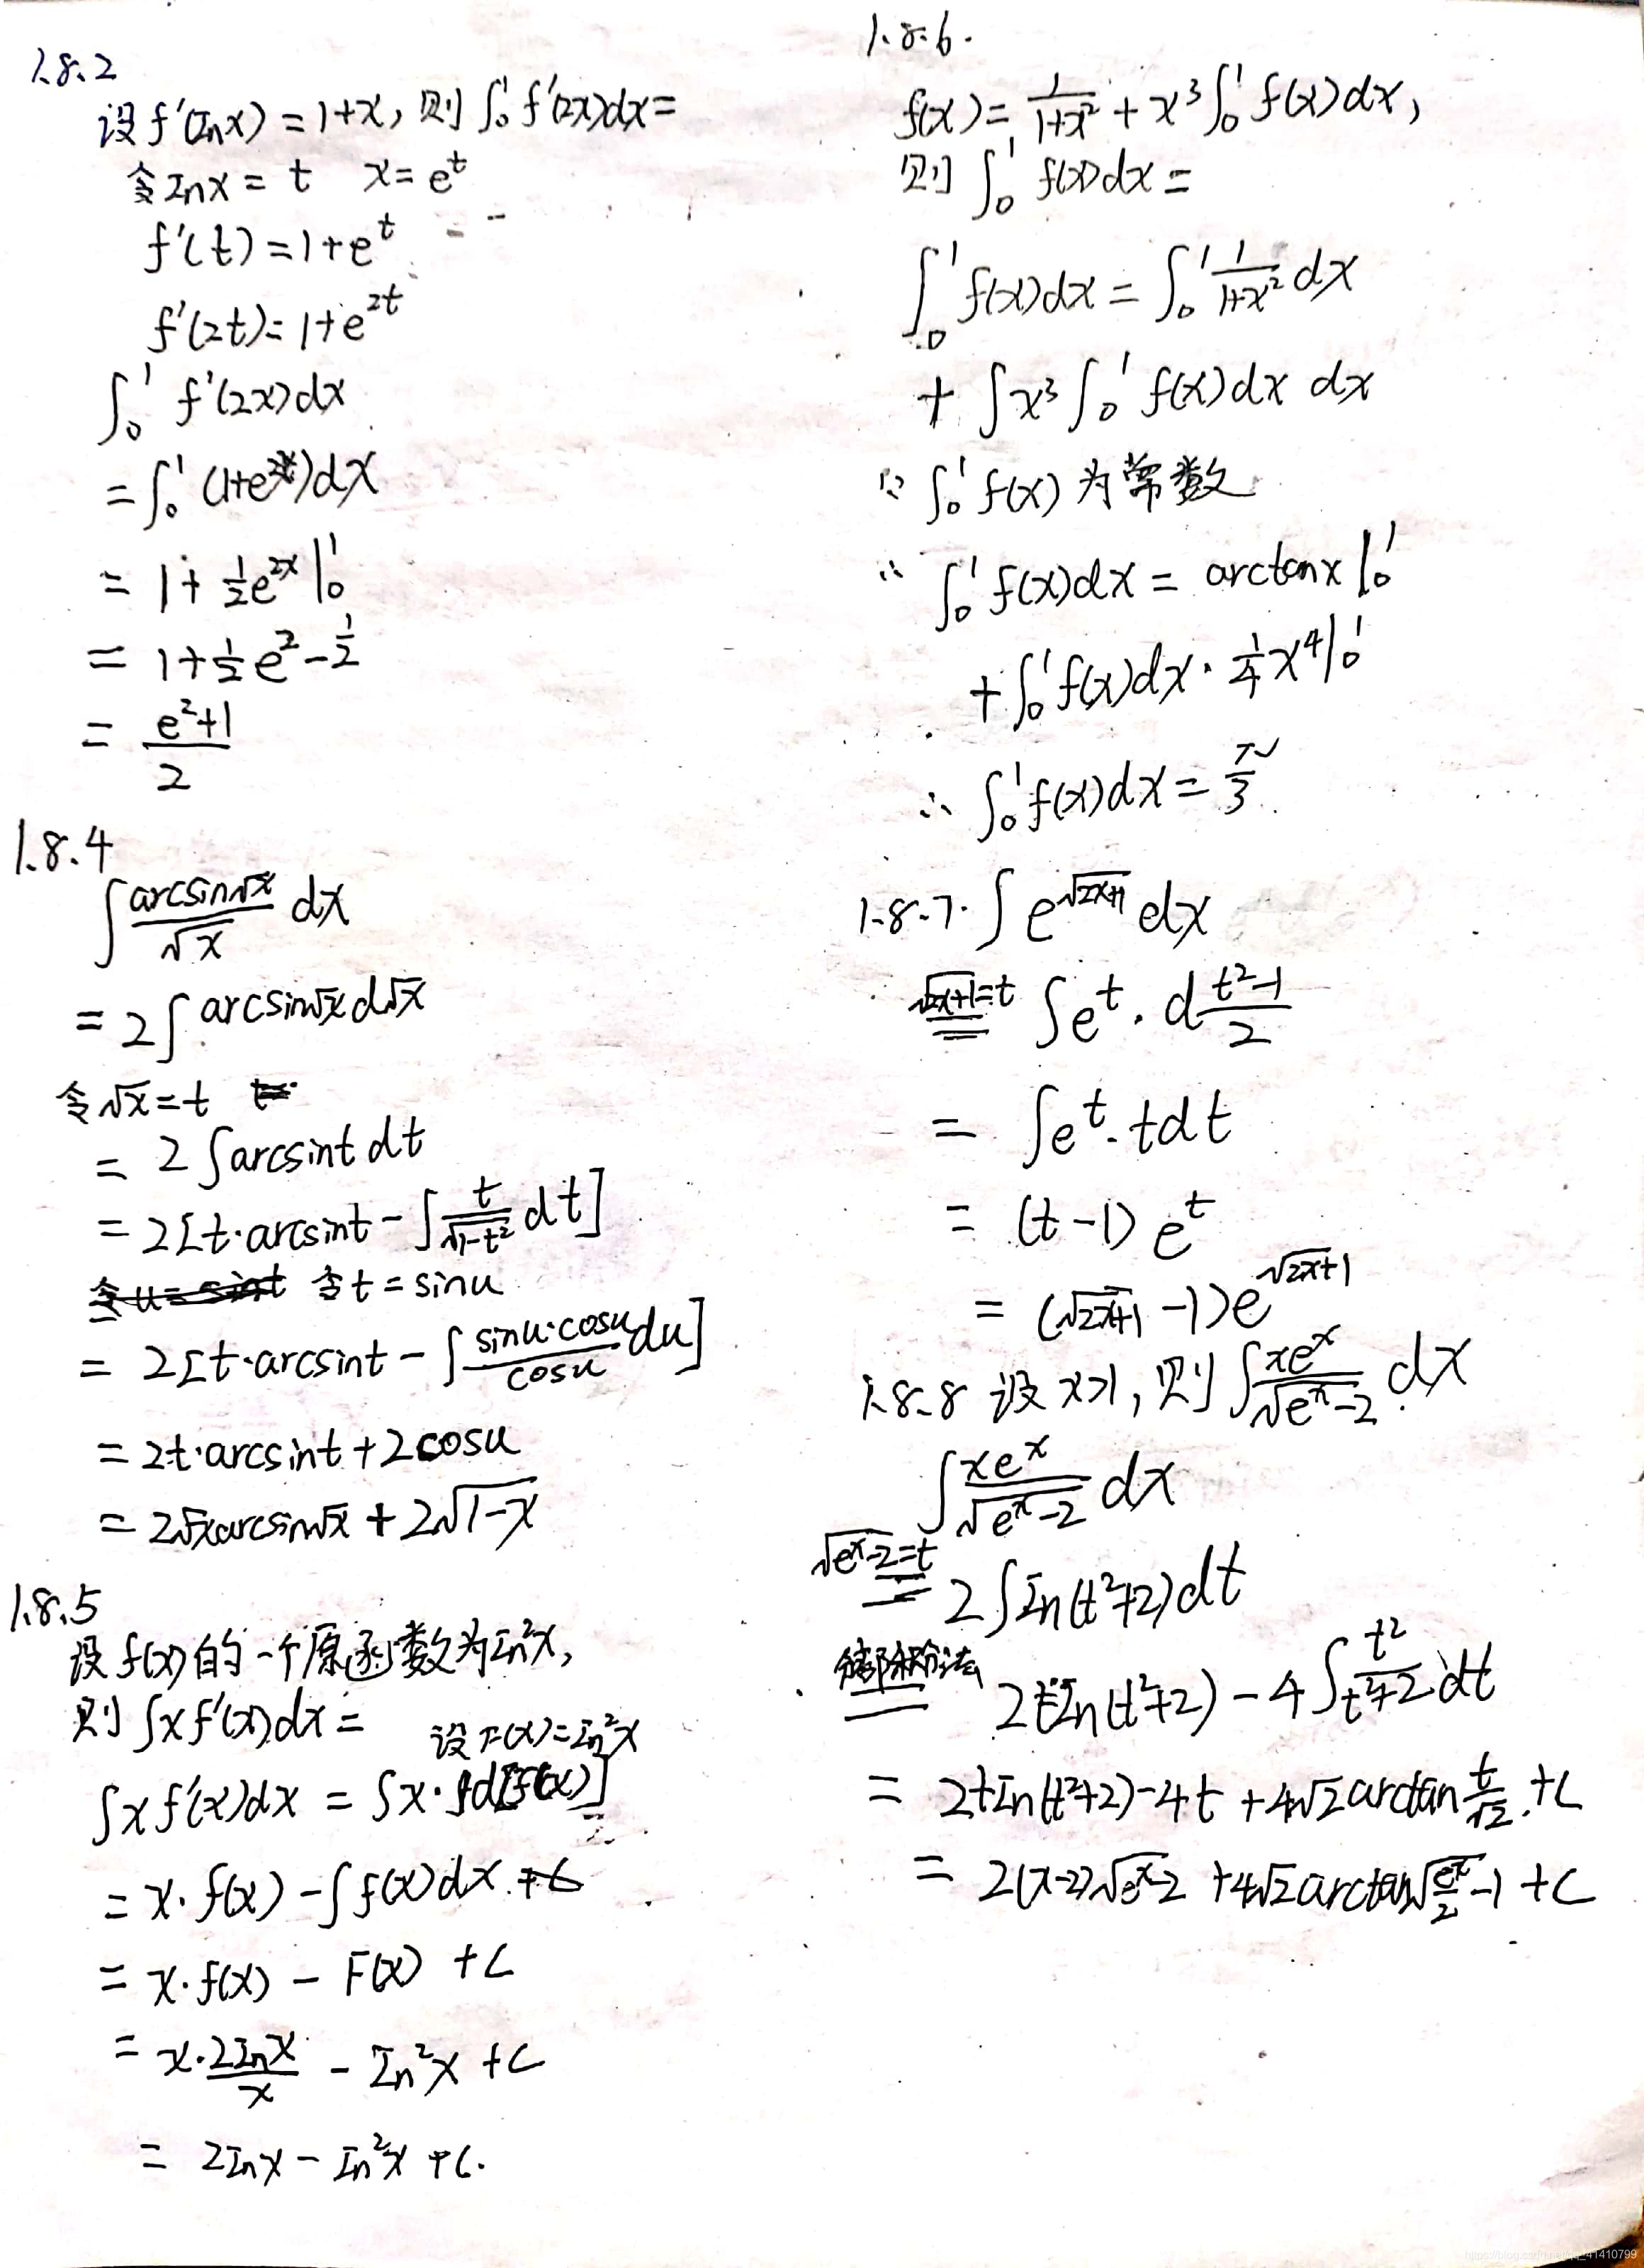 1.8.2
设 f'(lnx) = 1+x, 则 ∫₀¹ f'(2x)dx =
令 lnx = t x = e^t
f'(t) = 1+e^t
f'(2t) = 1+e^{2t}
∫₀¹ f'(2x)dx
= ∫₀¹ (1+e^{2x})dx
= 1 + ½e^{2x} |₀¹
= 1 + ½e² - ½
= \frac{e²+1}{2}
1.8.4
∫ \frac{arcsin√x}{√x} dx
= 2∫ arcsin√x d√x
令 √x = t
= 2∫arcsint dt
= 2[t·arcsint - ∫\frac{t}{√(1-t²)} dt]
令 t = sinu
= 2[t·arcsint - ∫\frac{sinu·cosu}{cosu} du]
= 2t·arcsint + 2cosu
= 2√x arcsin√x + 2√(1-x)
1.8.5
设 f(x) 的一个原函数为 ln²x,
则 ∫x f'(x)dx =
设 F(x) = ln²x
∫x f'(x)dx = ∫x· d[f(x)]
= x·f(x) - ∫f(x)dx
= x·f(x) - F(x) + C
= x·\frac{2lnx}{x} - ln²x + C
= 2lnx - ln²x + C.
1.8.6.
f(x) = \frac{1}{1+x²} + x³∫₀¹ f(x)dx,
则 ∫₀¹ f(x)dx =
∫₀¹ f(x)dx = ∫₀¹ \frac{1}{1+x²} dx
+ ∫x³ ∫₀¹ f(x)dx dx
∵ ∫₀¹ f(x) 为常数
∴ ∫₀¹ f(x)dx = arctanx |₀¹
+ ∫₀¹ f(x)dx · ¼x⁴ |₀¹
∴ ∫₀¹ f(x)dx = \frac{π}{3}
1.8.7. ∫ e^{√(2x+1)} dx
√(2x+1)=t
= ∫e^t · d\frac{t²-1}{2}
= ∫e^t · t dt
= (t-1) e^t
= (√(2x+1) - 1)e^{√(2x+1)}
1.8.8 设 x>1, 则 ∫\frac{xe^x}{√(e^x-2)} dx
∫\frac{xe^x}{√(e^x-2)} dx
√(e^x-2)=t
= 2∫ln(t²+2)dt
分部积分法
= 2t ln(t²+2) - 4∫\frac{t²}{t²+2} dt
= 2t ln(t²+2) - 4t + 4√2 arctan\frac{t}{√2} + C
= 2(x-2)√(e^x-2) + 4√2 arctan√(\frac{e^x}{2}-1) + C